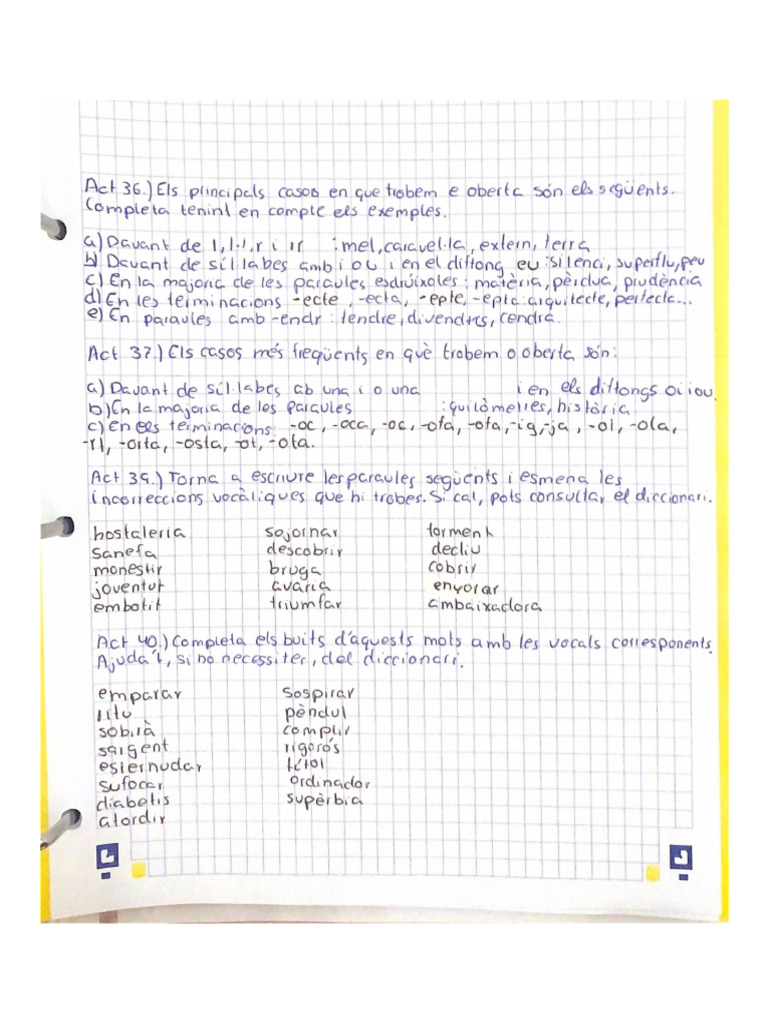 Act 36.) Els principals casos en que trobem e oberta són els següents.
Completa tenint en compte els exemples.
a) Davant de l, l·l, r i rr : mel, caravel·la, extern, terra
b) Davant de síl·labes amb i o u i en el diftong eu : silenci, superflu, peu
c) En la majoria de les paraules esdrúixoles : matèria, pèrdua, prudència
d) En les terminacions -ecte, -ecta, -epte, -epta: arquitecte, perfecta...
e) En paraules amb -endr : tendre, divendres, cendra.
Act 37.) Els casos més freqüents en què trobem o oberta són:
a) Davant de síl·labes ab una i o una i en els diftongs oi i ou.
b) En la majoria de les paraules : quilòmetres, història
c) en els terminacions -oc, -oca, -oc, -ofa, -ofa, -ig, -ja, -ol, -ola,
-rl, -orta, -osta, -ot, -ota.
Act 39.) Torna a escriure les paraules següents i esmena les
incorreccions vocàliques que hi trobes. Si cal, pots consultar el diccionari.
hostaleria sojornar torment
sanefa descobrir decliu
monestir bruga cobrir
joventut avaria enyorar
embotit triumfar ambaixadora
Act 40.) Completa els buits d'aquests mots amb les vocals corresponents.
Ajuda't, si no necessiter, del diccionari.
emparar sospirar
ritu pèndul
sobirà complir
sargent rigorós
esternudar títol
sufocar ordinador
diabetis supèrbia
atordir